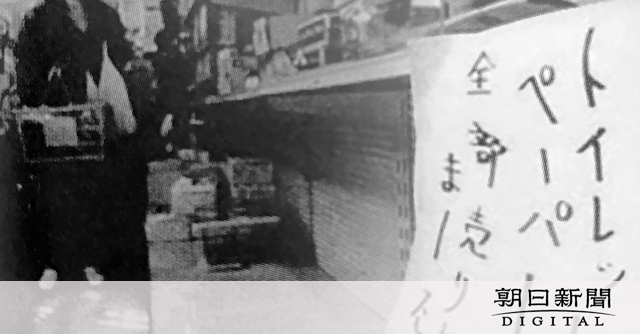 トイレッ
ペーパー
全部売り
まし
朝日新聞
DIGITAL